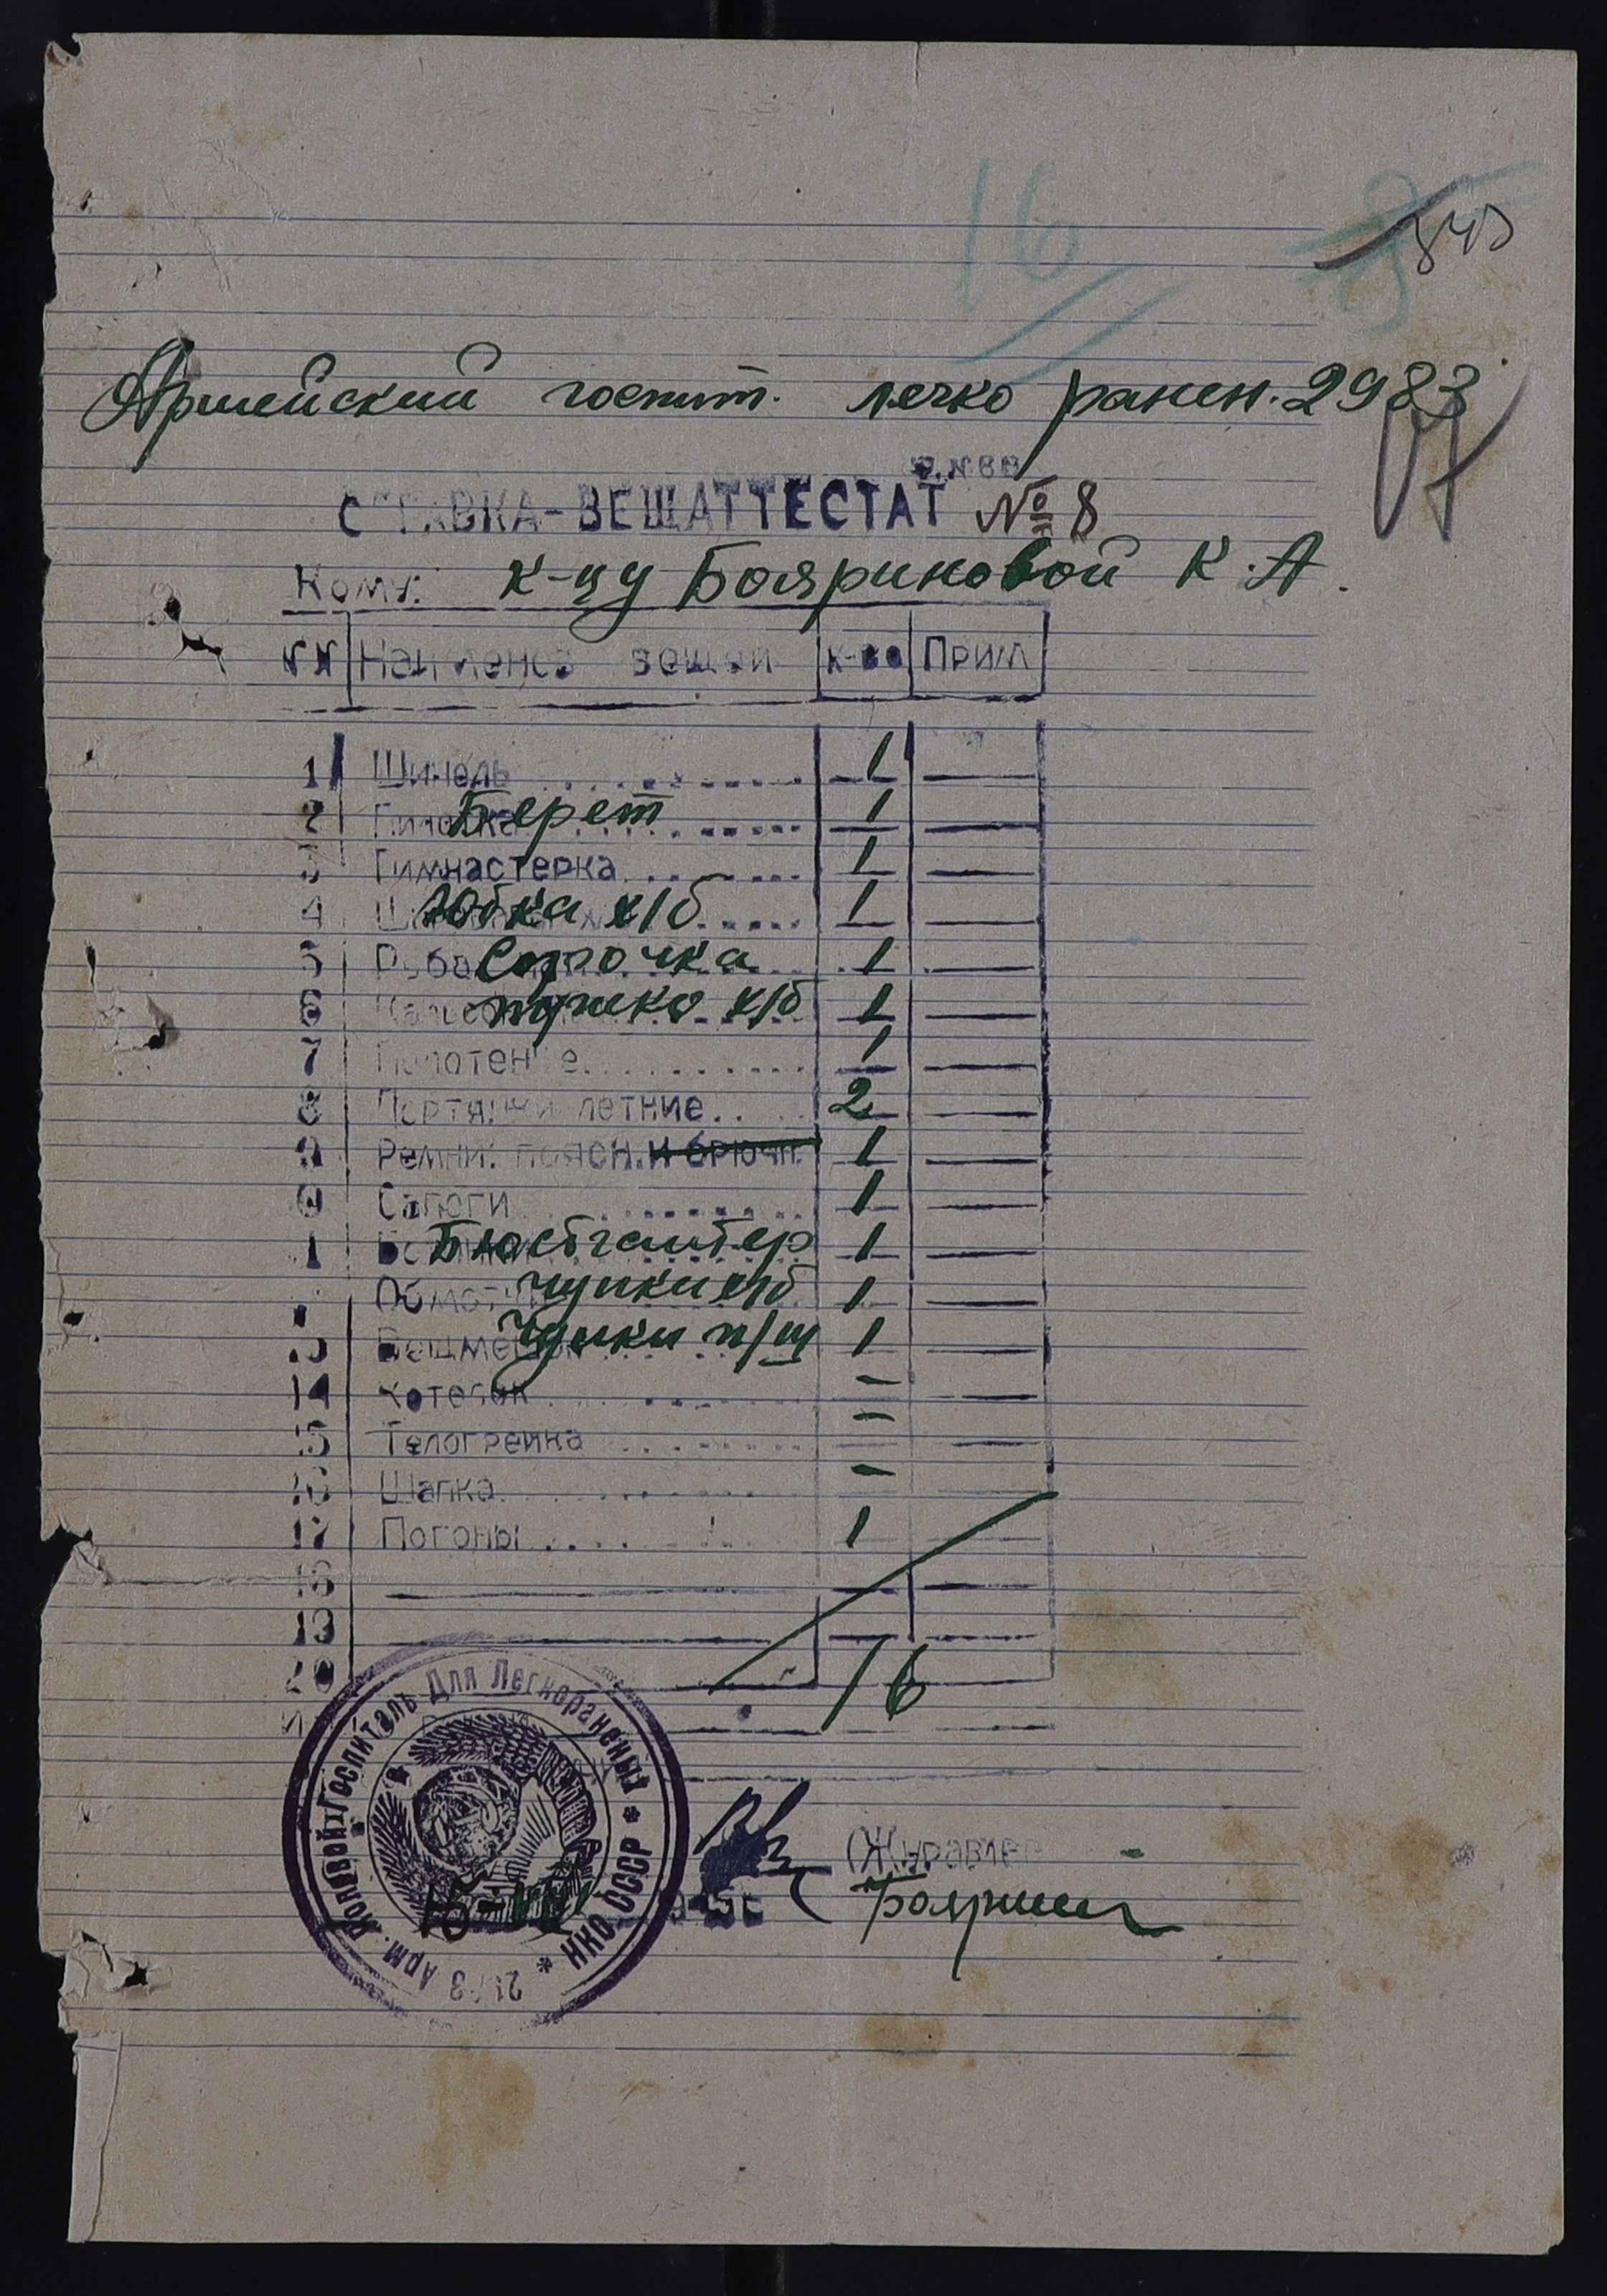 16
Армейский госпит. легко ранен. 2983
СПРАВКА-ВЕЩАТТЕСТАТ № 8
Кому: к-цу Бояриновой К.А.
Наименов вещей к-во Прим
1 Шинель 1
2 Берет 1
3 Гимнастерка 1
4 Юбка х/б 1
5 Сорочка 1
6 х/б 1
7 Полотенце 1
8 Портянки летние 2
9 Ремни: поясн. и брючн. 1
Сапоги 1
Бюстгалтер 1
Чулки х/б 1
Чулки п/ш 1
14 Котелок –
15 Телогрейка –
16 Шапка –
17 Погоны 1
18
19
20
16
Арм. Полевой Госпиталь Для Легкораненых * НКО СССР *
(Журавлев